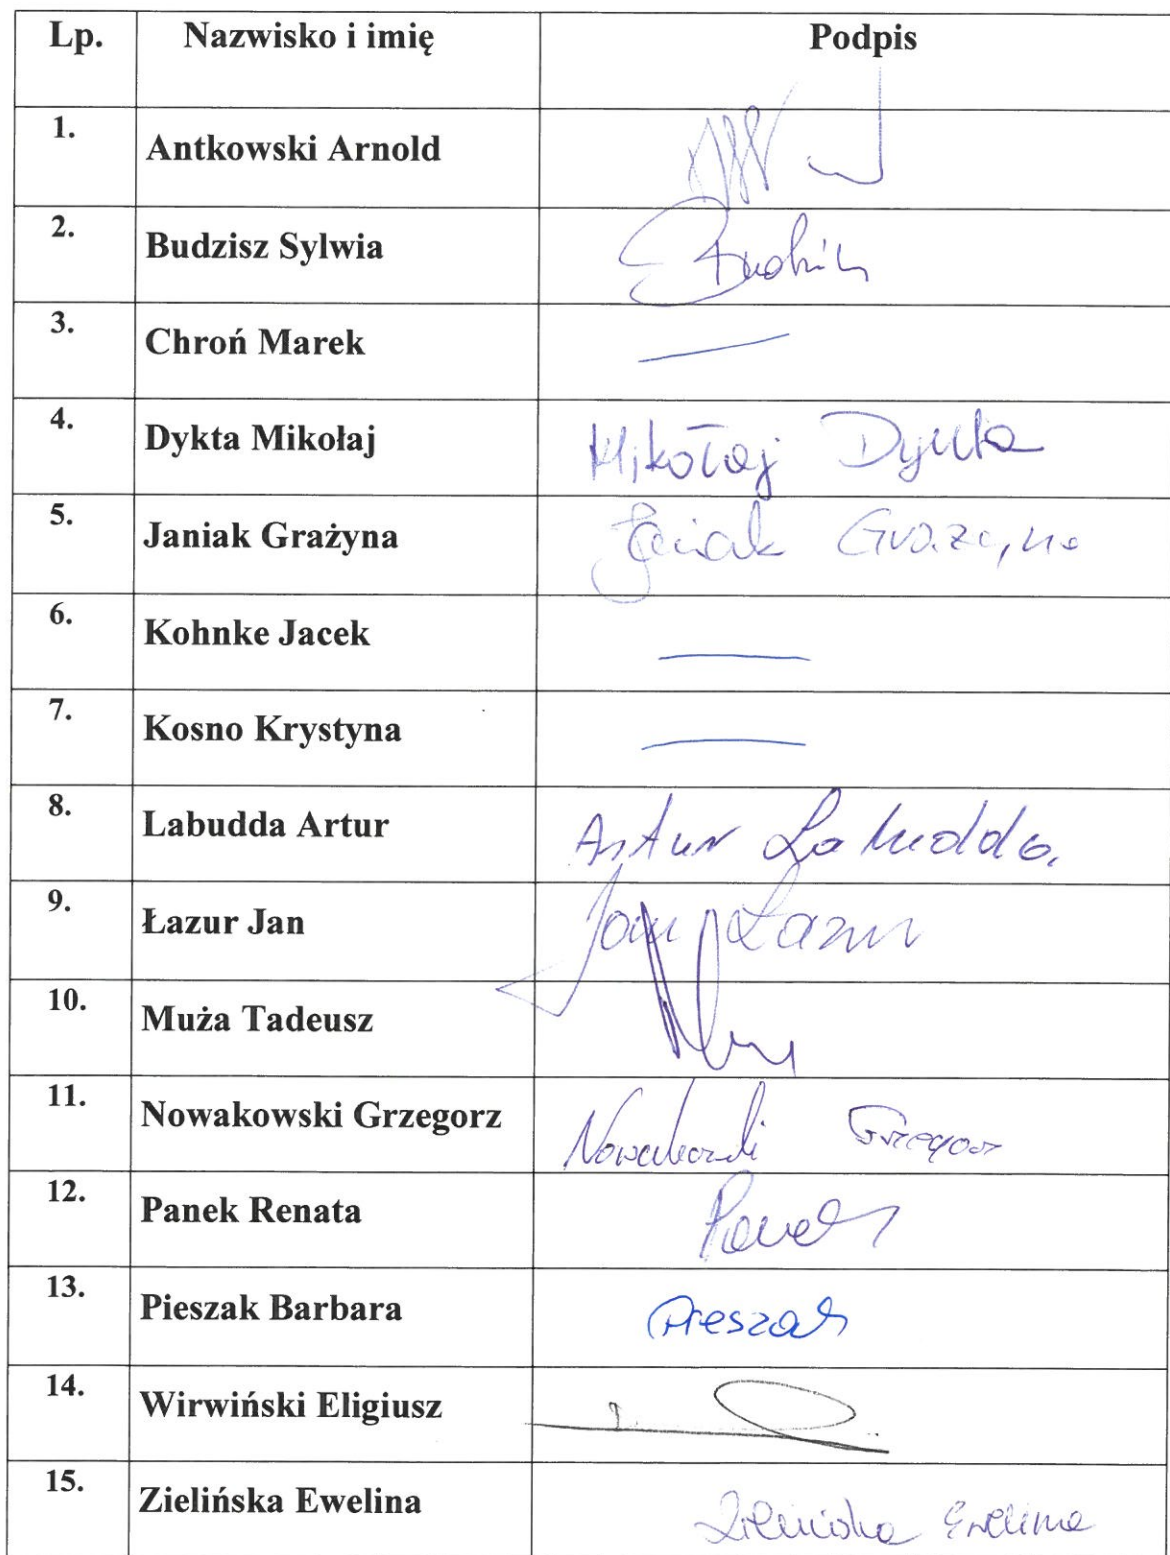 Lp. Nazwisko i imię Podpis
1. Antkowski Arnold
2. Budzisz Sylwia
3. Chroń Marek
4. Dykta Mikołaj Mikołaj Dykta
5. Janiak Grażyna Janiak Grażyna
6. Kohnke Jacek
7. Kosno Krystyna
8. Labudda Artur Artur Labudda
9. Łazur Jan Jan Łazur
10. Muża Tadeusz
11. Nowakowski Grzegorz Nowakowski Grzegorz
12. Panek Renata Panek
13. Pieszak Barbara Pieszak
14. Wirwiński Eligiusz
15. Zielińska Ewelina Zielińska Ewelina